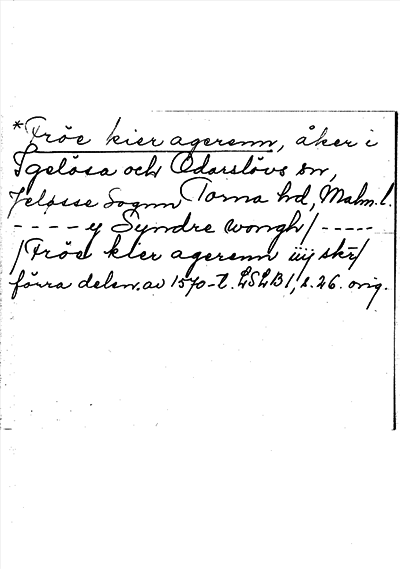 *Fröe kier agerenn, åker i
Igelösa och Odarslövs sn,
Jeløsse Sognn Torna hd, Malm. l.
- - - - y Syndre wongh / - - - - -
/ Fröe kier agerenn iiij skr /
förra delen av 1570-t. LSLB 1, s. 26. orig.